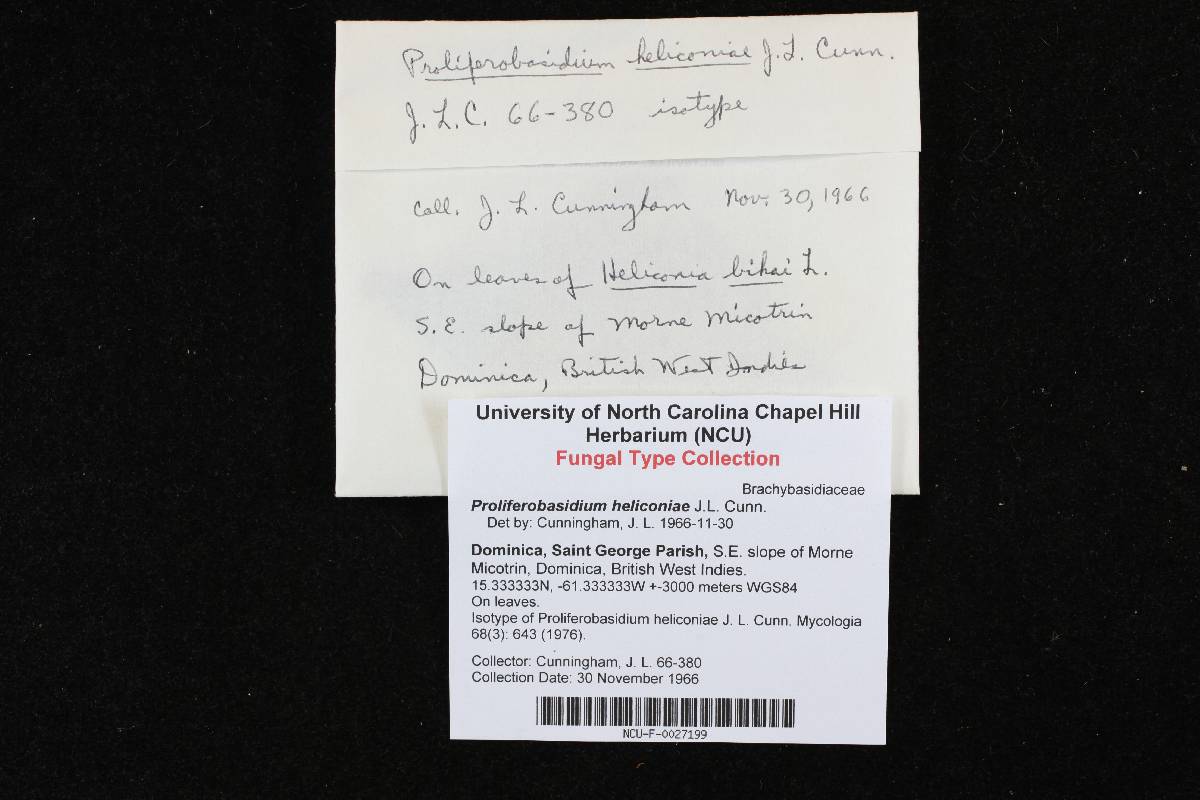 Proliferobasidium heliconiae J.L. Cunn.
J.L.C. 66-380 isotype
coll. J. L. Cunningham Nov. 30, 1966
On leaves of Heliconia bihai L.
S.E. slope of Morne Micotrin
Dominica, British West Indies
University of North Carolina Chapel Hill
Herbarium (NCU)
Fungal Type Collection
Brachybasidiaceae
Proliferobasidium heliconiae J.L. Cunn.
Det by: Cunningham, J. L. 1966-11-30
Dominica, Saint George Parish, S.E. slope of Morne
Micotrin, Dominica, British West Indies.
15.333333N, -61.333333W +-3000 meters WGS84
On leaves.
Isotype of Proliferobasidium heliconiae J. L. Cunn. Mycologia
68(3): 643 (1976).
Collector: Cunningham, J. L. 66-380
Collection Date: 30 November 1966
NCU-F-0027199